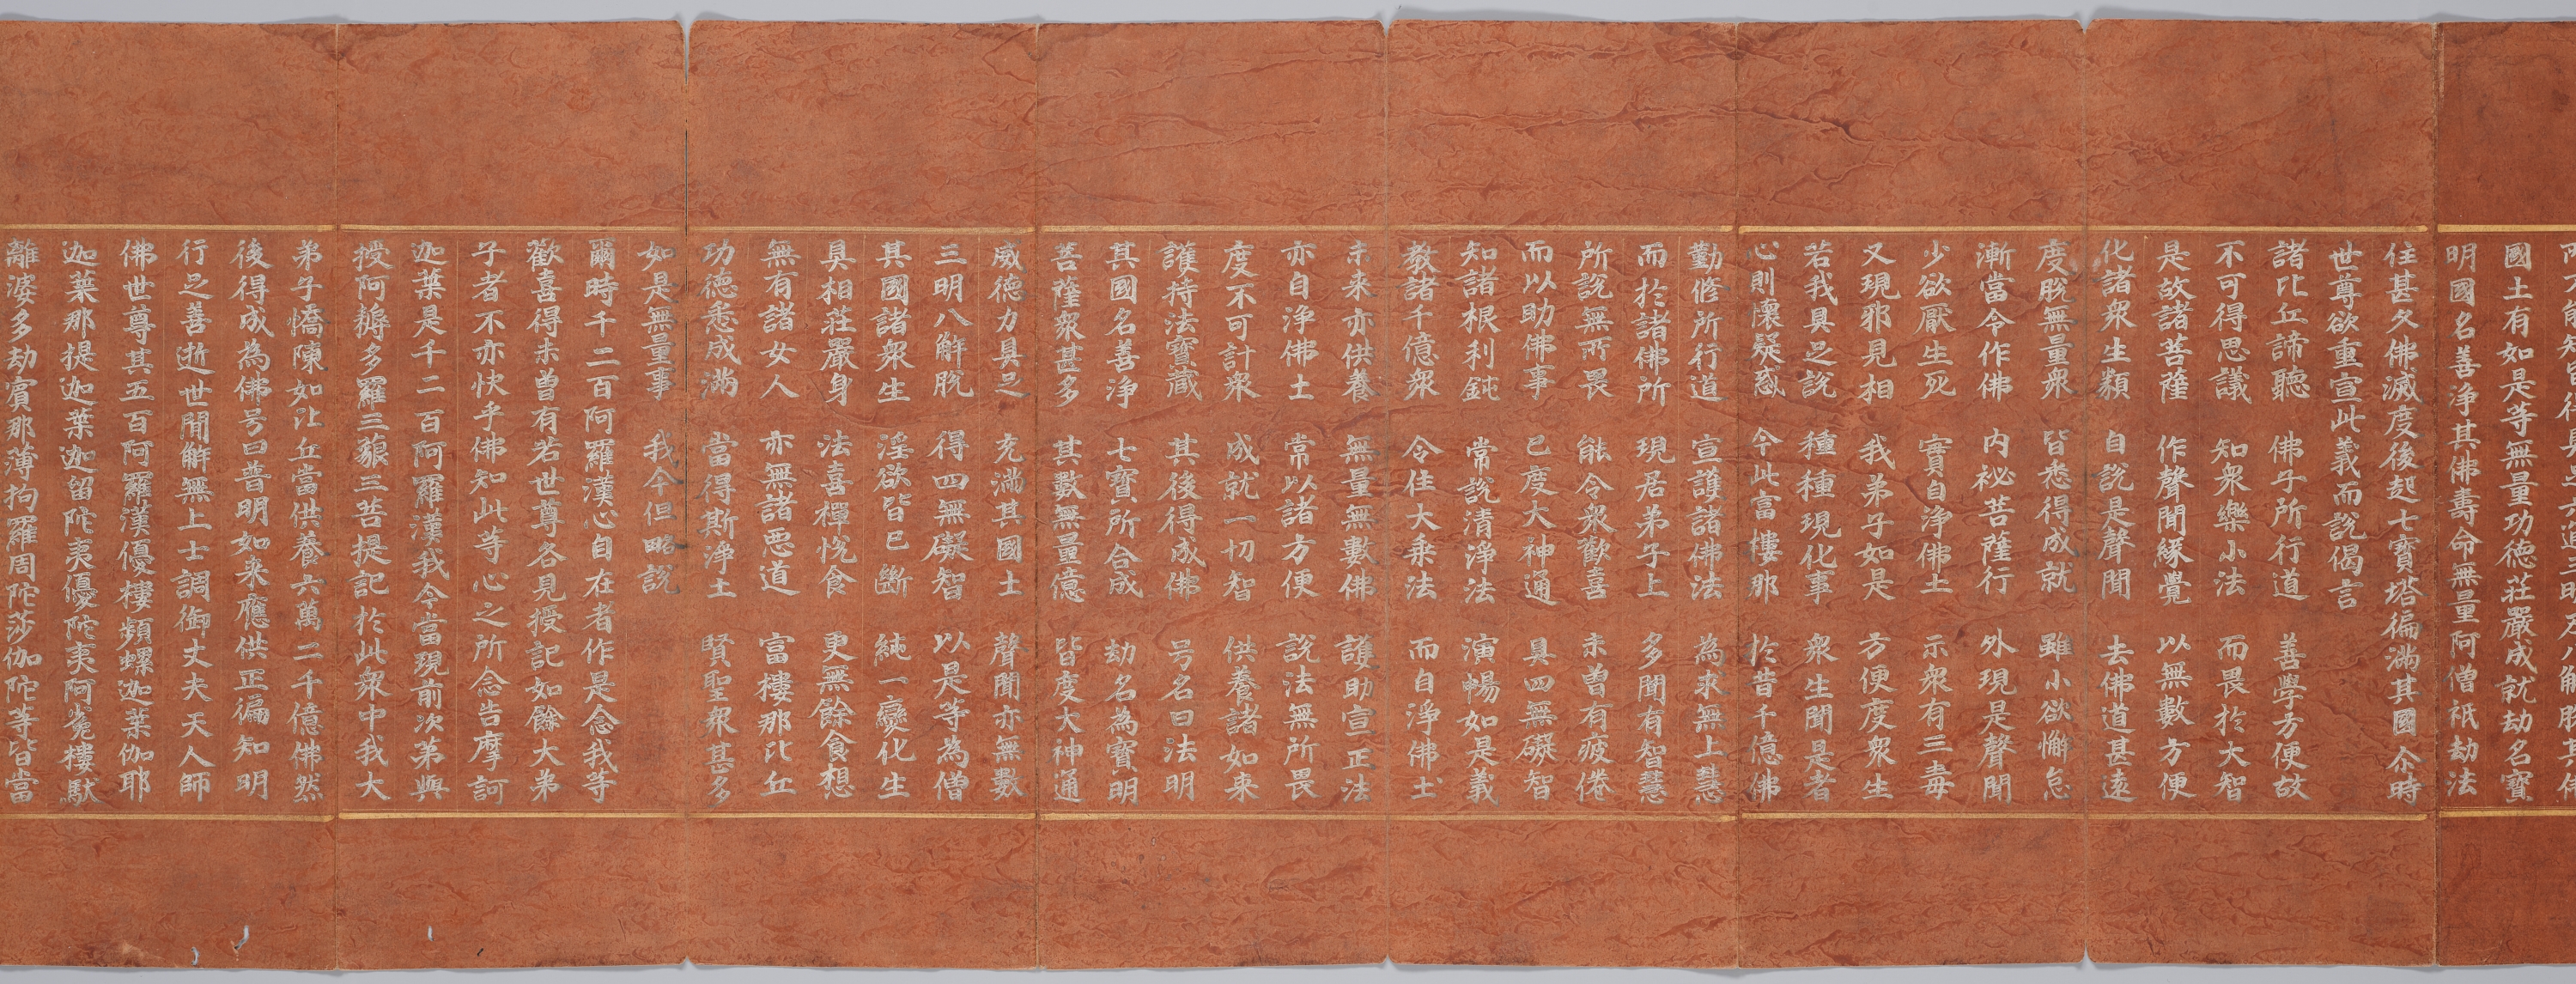 國土有如是等無量功德莊嚴成就劫名寶
明國名善淨其佛壽命無量阿僧祇劫法
住甚久佛滅度後起七寶塔徧滿其國尒時
世尊欲重宣此義而說偈言
諸比丘諦聽　佛子所行道　善學方便故
不可得思議　知衆樂小法　而畏於大智
是故諸菩薩　作聲聞緣覺　以無數方便
化諸衆生類　自說是聲聞　去佛道甚遠
度脫無量衆　皆悉得成就　雖小欲懈怠
漸當令作佛　內祕菩薩行　外現是聲聞
少欲厭生死　實自淨佛土　示衆有三毒
又現邪見相　我弟子如是　方便度衆生
若我具足說　種種現化事　衆生聞是者
心則懷疑惑　今此富樓那　於昔千億佛
勤修所行道　宣護諸佛法　為求無上慧
而於諸佛所　現居弟子上　多聞有智慧
所說無所畏　能令衆歡喜　未曾有疲倦
而以助佛事　已度大神通　具四無礙智
知諸根利鈍　常說清淨法　演暢如是義
教諸千億衆　令住大乘法　而自淨佛土
未来亦供養　無量無數佛　護助宣正法
亦自淨佛土　常以諸方便　說法無所畏
度不可計衆　成就一切智　供養諸如来
護持法寶藏　其後得成佛　号名曰法明
其國名善淨　七寶所合成　劫名為寶明
菩薩衆甚多　其數無量億　皆度大神通
威德力具足　充滿其國土　聲聞亦無數
三明八解脫　得四無礙智　以是等為僧
其國諸衆生　淫欲皆已斷　純一變化生
具相莊嚴身　法喜禪悅食　更無餘食想
無有諸女人　亦無諸惡道　富樓那比丘
功德悉成滿　當得斯淨土　賢聖衆甚多
如是無量事　我今但略說
爾時千二百阿羅漢心自在者作是念我等
歡喜得未曾有若世尊各見授記如餘大弟
子者不亦快乎佛知此等心之所念告摩訶
迦葉是千二百阿羅漢我今當現前次第與
授阿耨多羅三藐三菩提記於此衆中我大
弟子憍陳如比丘當供養六萬二千億佛然
後得成為佛号曰普明如来應供正徧知明
行足善逝世間解無上士調御丈夫天人師
佛世尊其五百阿羅漢優樓頻螺迦葉伽耶
迦葉那提迦葉迦留陀夷優陀夷阿㝹樓馱
離婆多劫賓那薄拘羅周陀莎伽陀等皆當